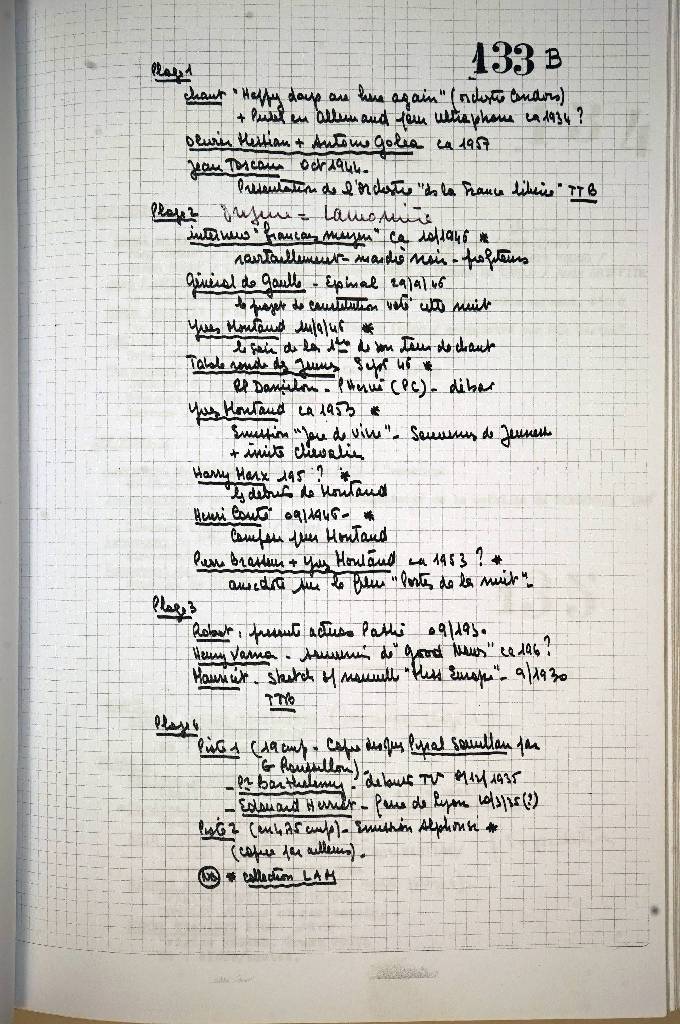 133 B
Plage 1
chant "Happy days are here again" (orchestre Candrix)
+ Publ en Allemand pour ultraphone ca 1934 ?
Olivier Messian + Antoine Golea ca 1957
Jean Toscane Oct 1944 -
Présentation de l'orchestre "de la France libérée" TTB
Plage 2
interview "francais moyen" ca 10/1946 *
ravitaillement - marché noir - profiteurs
Général de Gaulle - Epinal 29/9/46
le projet de constitution voté cette nuit
Yves Montand /9/46 *
le soir de la 1ère de son tour de chant
Table ronde des Jeunes Sept 46 *
RP Danielou - P Hervé (PC) - débat
Yves Montand ca 1953 *
Emission "Joie de vivre" - Souvenirs de Jeunesse
+ imite Chevalier
Harry Marx 195 ? *
les débuts de Montand
Henri Contet 09/1946 - *
Compose pour Montand
Pierre Brasseur + Yves Montand ca 1953 ? *
anecdote sur le film "Portes de la nuit" -
Plage 3
Robert : présente actues Pathé 09/1930
Henry Varna - souvenirs de "good News" ca 196 ?
Mauricet - Sketch s/ nouvelle "Miss Europe" - 9/1930
TTB
Plage 4
Piste 1 (19 cm/s - Copie disques Pyral Souillan par
G Roussillon)
- Barthelemy - débuts TV 8/12/1935
- Edouard Herriot - foire de Lyon 10/3/35 (?)
Piste 2 (en 4,75 cm/s) - Emission Alphonse *
(copie par ailleurs).
NB * collection LAM